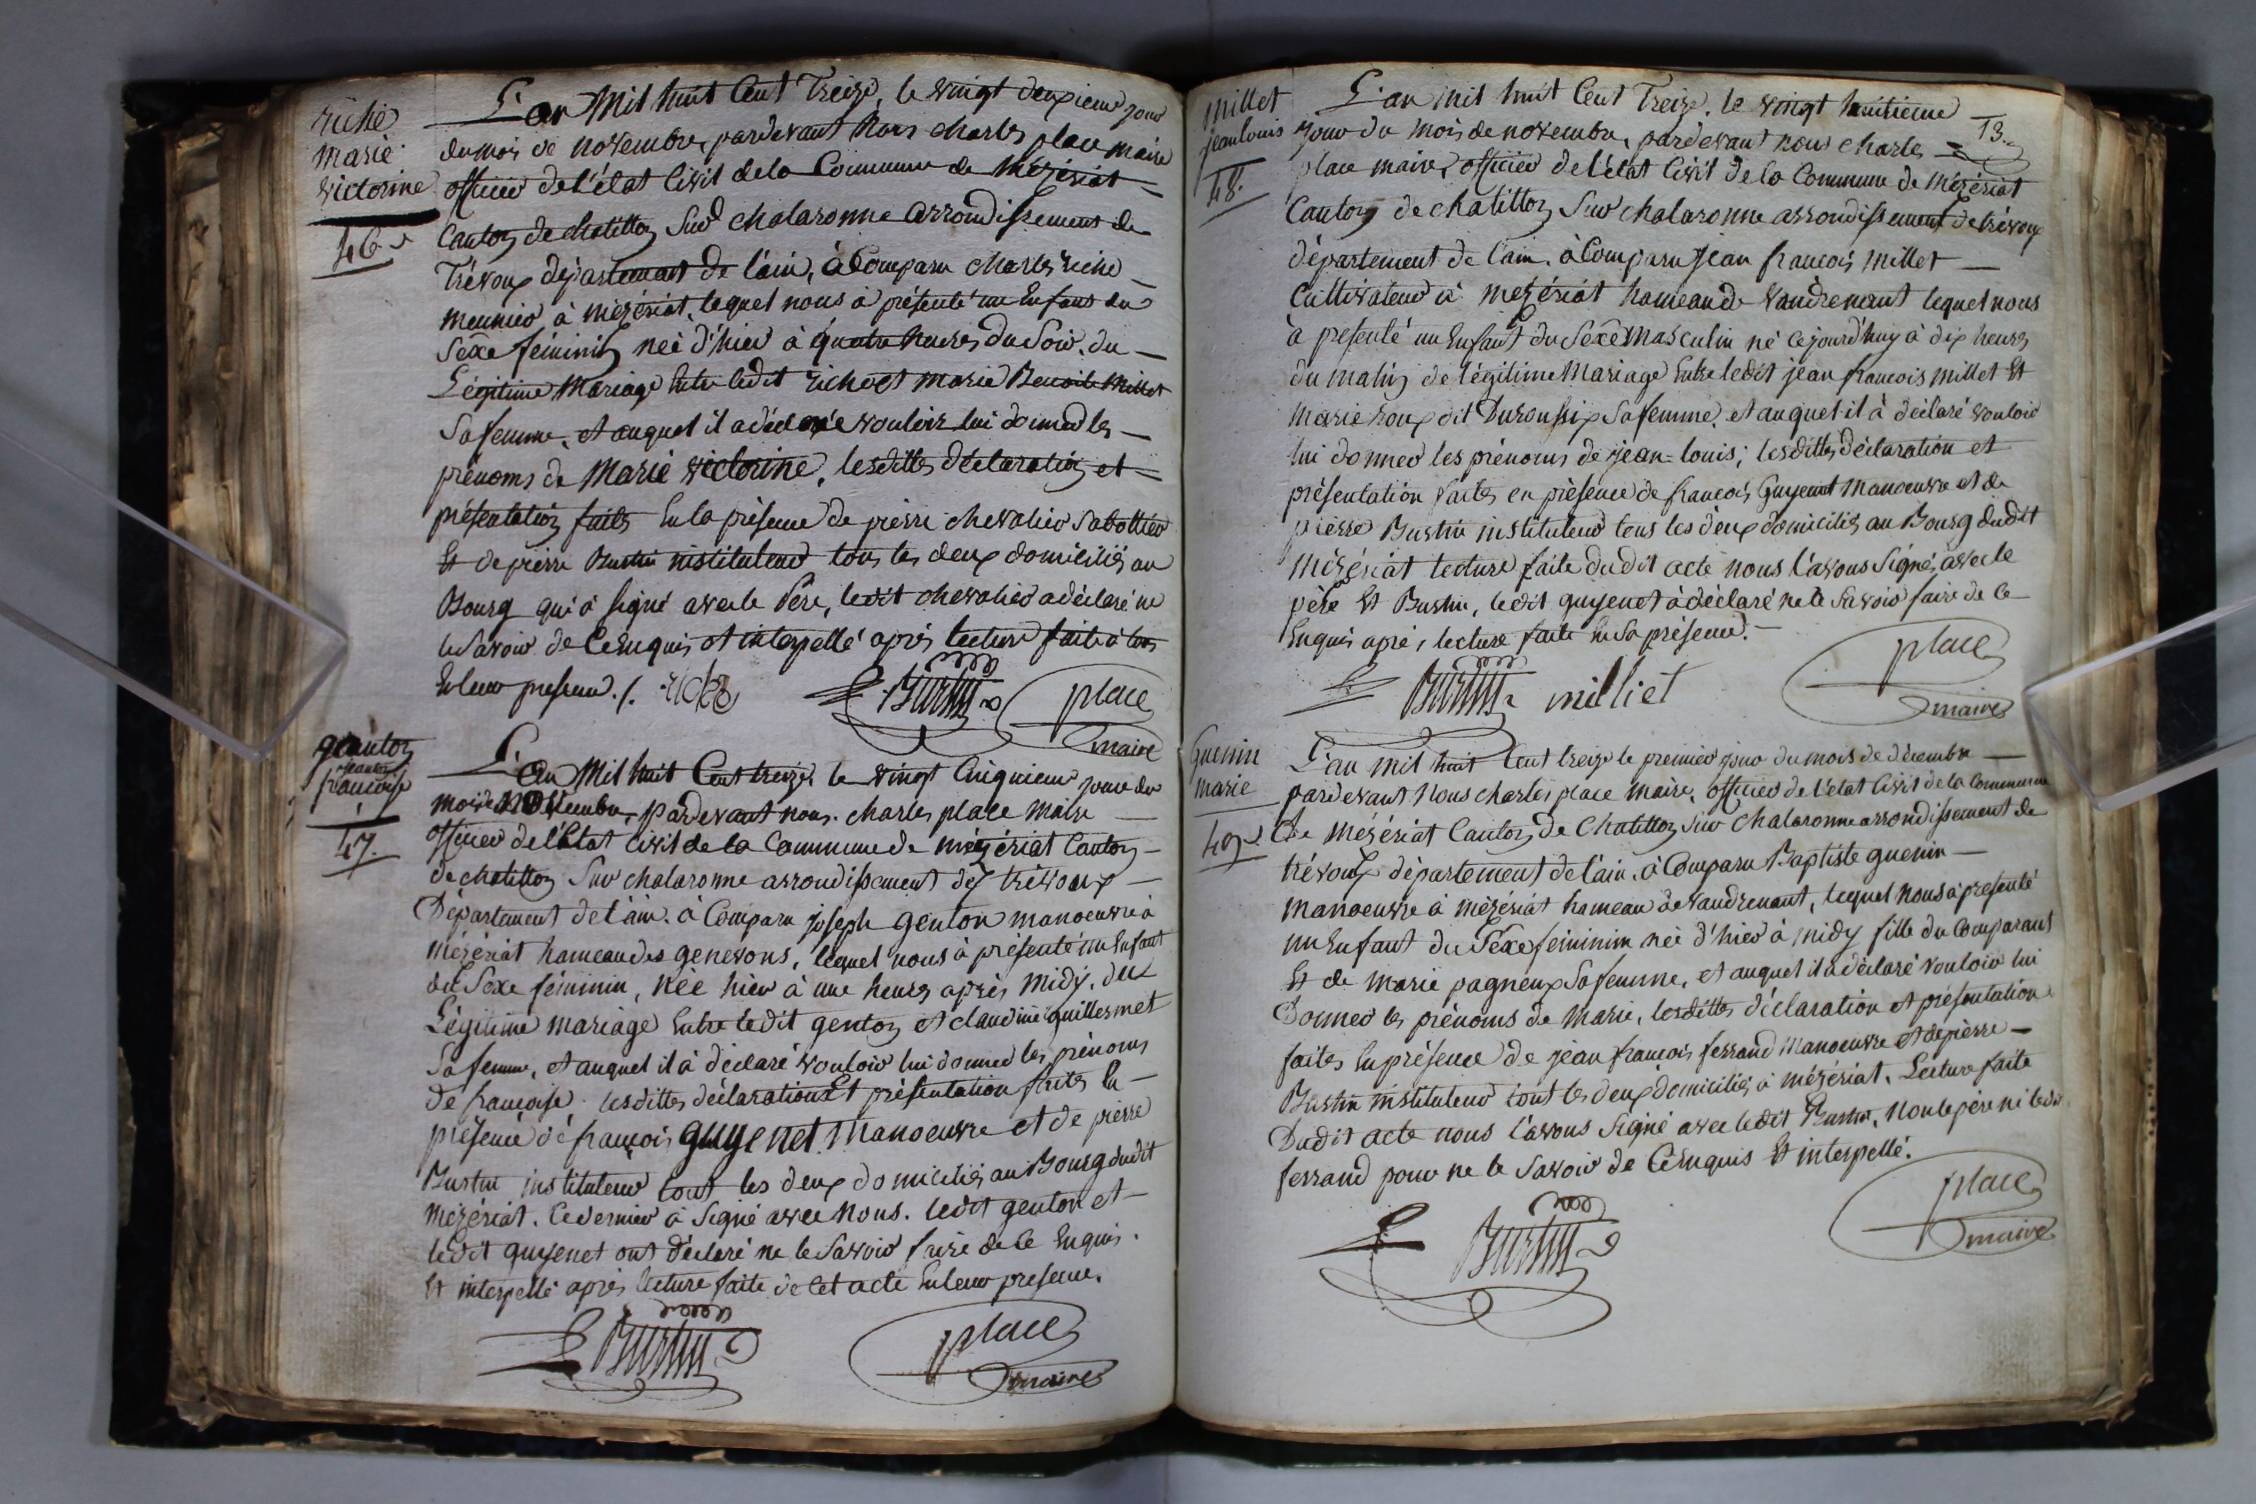 riche
marie
victorine
46e
L'an Mil huit Cent Treize, le vingt deuxieme jour
du mois de novembre, pardevant Nous charles place maire
officier de l'état Civil de la Commune de Mézériat
Canton de chatillon Sur chalaronne arrondissement de
Trévoux département de l'ain, à Comparu charles riche
meunier à mézériat, lequel nous à présenté un Enfant du
Sexe féminin neé d'hier à quatre heures du Soir, du
Légitime Mariage Entre ledit riche et marie Benoite Millet
Sa femme, et auquel il a déclaré vouloir lui donner les
prénoms de Marie victorine, lesdittes déclaration et
présentation faites En la présence de pierre chevalier Sabottier
Et de pierre Burtin instituteur tous les deux domiciliés au
Bourg qui à signé avec le Père, ledit chevalier a déclaré ne
le Savoir de Ce Enquis et interpellé après lecture faite à tous
En leur presence ./. riche Burtin place
maire
genton
françoise
47.
L'an Mil huit Cent treize, le vingt Cinquieme jour du
mois de Novembre, pardevant nous charles place Maire
officier de l'Etat Civil de la Commune de mézériat Canton
de chatillon Sur chalaronne arrondissement de trévoux
Département de l'ain, à Comparu joseph genton manoeuvre à
mézériat hameau des genevons, lequel nous à présenté un Enfant
du Sexe féminin, Née hier à une heure après Midy, du
Légitime mariage Entre ledit genton et claudine guillermet
Sa femme, et auquel il à déclaré vouloir lui donner les prénoms
de françoise, lesdittes déclaration Et présentation faites En
présence de françois guyenet Manoeuvre et de pierre
Burtin instituteur tous les deux domiciliés au Bourg dudit
Mézériat. Ce dernier à Signé avec Nous. ledit genton et
ledit guyenet ont déclaré ne le Savoir faire de Ce Enquis.
Et interpellé après lecture faite de Cet acte En leur presence.
Burtin place
maire
Millet
jean louis
48.
13.
L'an Mil huit Cent Treize, le vingt huitieme
jour du mois de novembre, pardevant nous charles
place maire, officier de l'état Civil de la Commune de Mézériat
Canton de chatillon Sur chalaronne arrondissement de trévoux
département de l'ain, à Comparu Jean françois Millet
Cultivateur à Mézériat hameau de vandrenant lequel nous
à presenté un Enfant du Sexe Masculin né cejourd'huy à dix heures
du matin de légitime Mariage Entre ledit jean françois Millet Et
Marie roux dit Duroussix Sa femme, et auquel il à déclaré vouloir
lui donner les prénoms de jean-louis; lesdittes déclaration et
présentation faites en présence de françois Guyenet Manoeuvre et de
pierre Burtin instituteur tous les deux domiciliés au Bourg dudit
Mézériat lecture faite dudit acte nous l'avons Signé, avec le
père Et Burtin, ledit guyenet à déclaré ne le Savoir faire de Ce
Enquis après lecture faite En Sa présence.
Burtin milliet place
maire
Guenin
marie
49e
L'an mil huit Cent treize le premier jour du mois de décembre
pardevant Nous charles place Maire, officier de l'état Civil de la Commune
de Mézériat Canton de Chatillon Sur Chalaronne arrondissement de
trévoux département de l'ain, à Comparu Baptiste guenin
Manoeuvre à mézériat hameau de vandrenant, lequel nous à presenté
un Enfant du Sexe féminin neé d'hier à midy fille du Comparant
Et de Marie pagneux Sa femme, et auquel il à déclaré vouloir lui
Donner les prénoms de Marie, lesdittes déclaration et présentation
faites En présence de jean françois ferrand Manoeuvre et de pierre
Burtin instituteur tous les deux domiciliés à mézériat, Lecture faite
Dudit acte nous l'avons Signé avec ledit Burtin, Non le père ni ledit
ferrand pour ne le Savoir de Ce Enquis Et interpellé.
Burtin place
maire